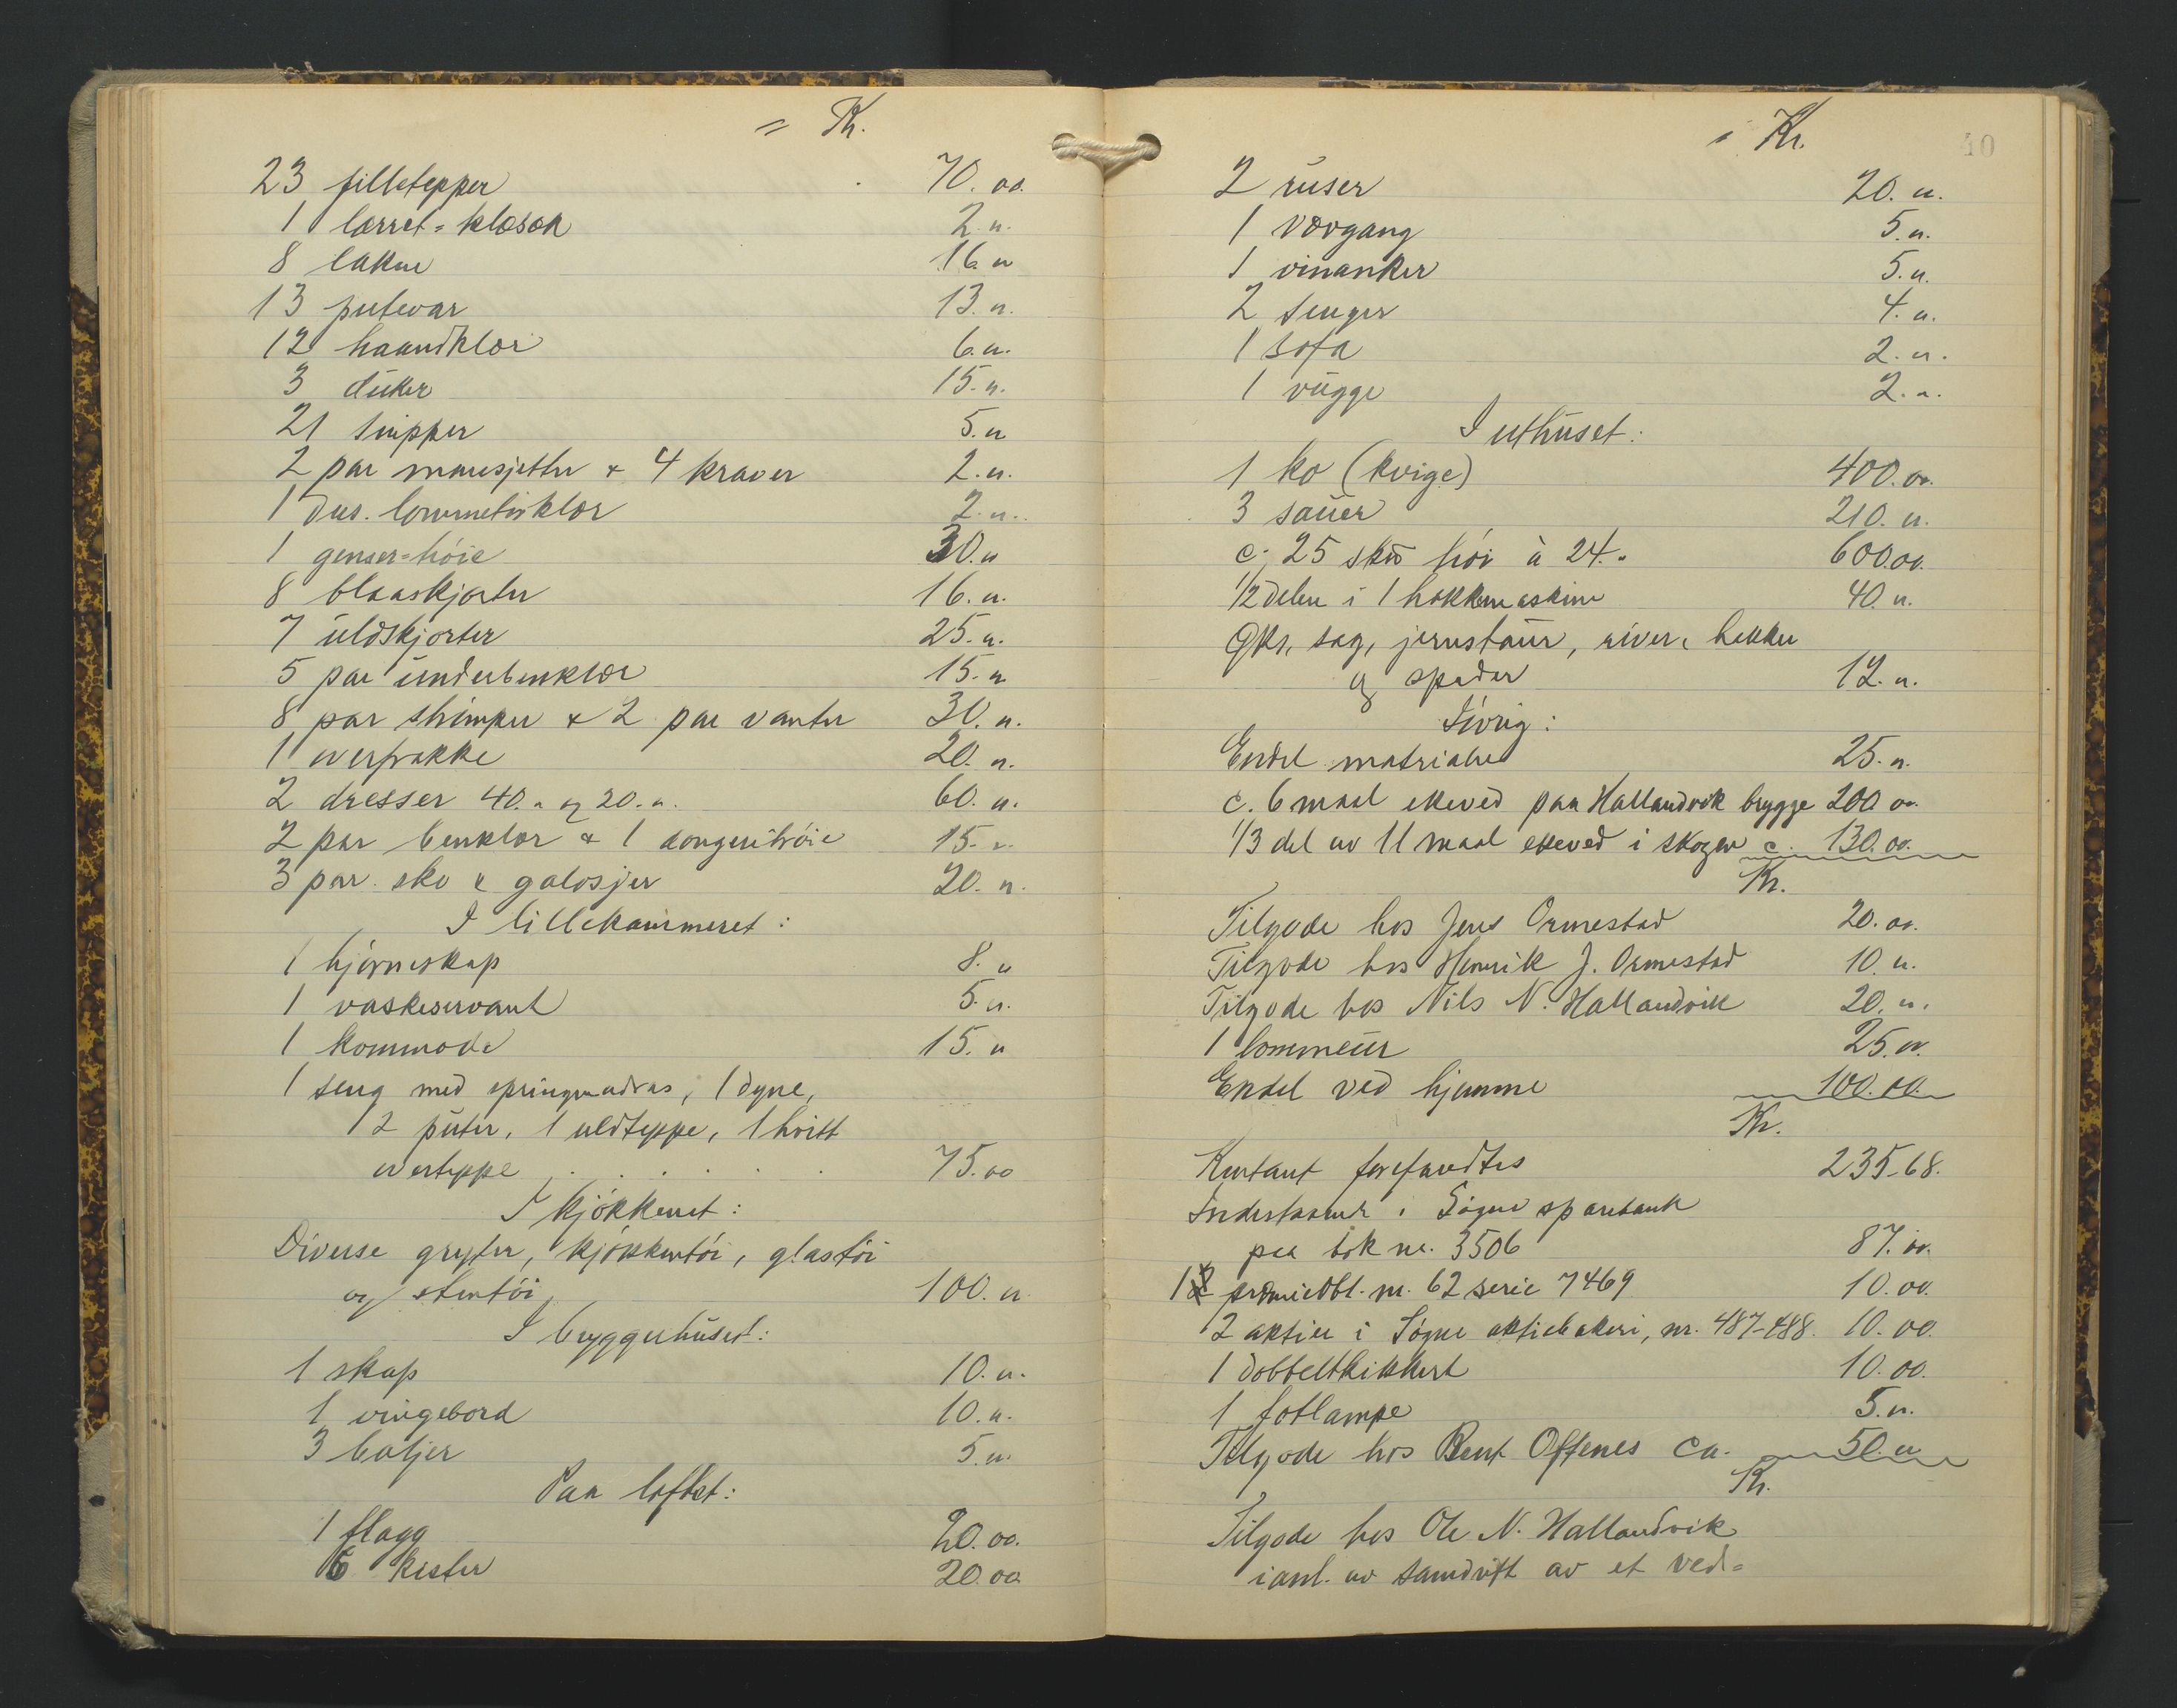 = Kr.
23 filletepper . 70.oo.
1 lærret=klæsæk 2.„.
8 lakne 16.„
13 putevar 13.„.
12 haandklær 6.„.
3 duker 15.„.
21 snipper 5.„
2 par mansjetter & 4 kraver 2.„.
1 dus. lommetörklær 2.„.
1 genser=tröie 30.„
8 blaaskjorter 16.„.
7 uldskjorter 25.„.
5 par underbenklær 15.„
8 par strömper & 2 par vanter 30.„.
1 overfrakke 20.„.
2 dresser 40.„ og 20.„. 60.„.
2 par benklær & 1 dongeritröie 15.„.
3 par sko & galosjer 20.„.
I lillekammeret:
1 hjörneskap 8.„
1 vaskeservant 5.„.
1 kommode 15.„
1 seng med springmadras, 1 dyne,
2 puter, 1 uldteppe, 1 hvitt
overteppe . . . . . . 75.oo
I kjökkenet:
Diverse gryter, kjökkentöi, glastöi
og stentöi 100.„
I bryggerhuset:
1 skap 10.„.
1 vingebord 10.„.
3 baljer 5.„.
Paa loftet:
1 flagg 20.oo.
6 kister 20.oo
= Kr.
40
2 ruser 20.„.
1 vævgang 5.„.
1 vinanker 5.„.
2 senger 4.„.
1 sofa 2.„.
1 vugge 2.„.
I uthuset:
1 ko (kvige) 400.oo.
3 sauer 210.„.
c. 25 skb höi à 24.„ 600.oo.
1/2 delen i 1 hakkemaskine 40.„.
Öks, sag, jernstaur, river, hakker
og spader 12.„.
Iövrig:
Endel matrialer 25.„.
c. 6 maal ekeved paa Hallandvik brygge 200.oo.
1/3 del av 11 maal ekeved i skogen c. 130.oo.
Kr.
Tilgode hos Jens Ormestad 20.oo.
Tilgode hos Henrik J. Ormestad 10.„.
Tilgode hos Nils N. Hallandvik 20.„.
1 lommeur 25.oo.
Endel ved hjemme 100.oo.
Kr.
Kontant forefandtes 235-68.
Indestaaende i Sögne sparebank
paa bok nr. 3506 87.oo.
1 præmieobl. nr. 62 serie 7469 10.oo.
2 aktier i Sögne aktiebakeri, nr. 487-488. 10.oo.
1 dobbeltkikkert 10.oo.
1 fotlampe 5.„.
Tilgode hos Bent Offenes ca. 50.„
Kr.
Tilgode hos Ole N. Hallandvik
i anl. av samdrift av et ved=